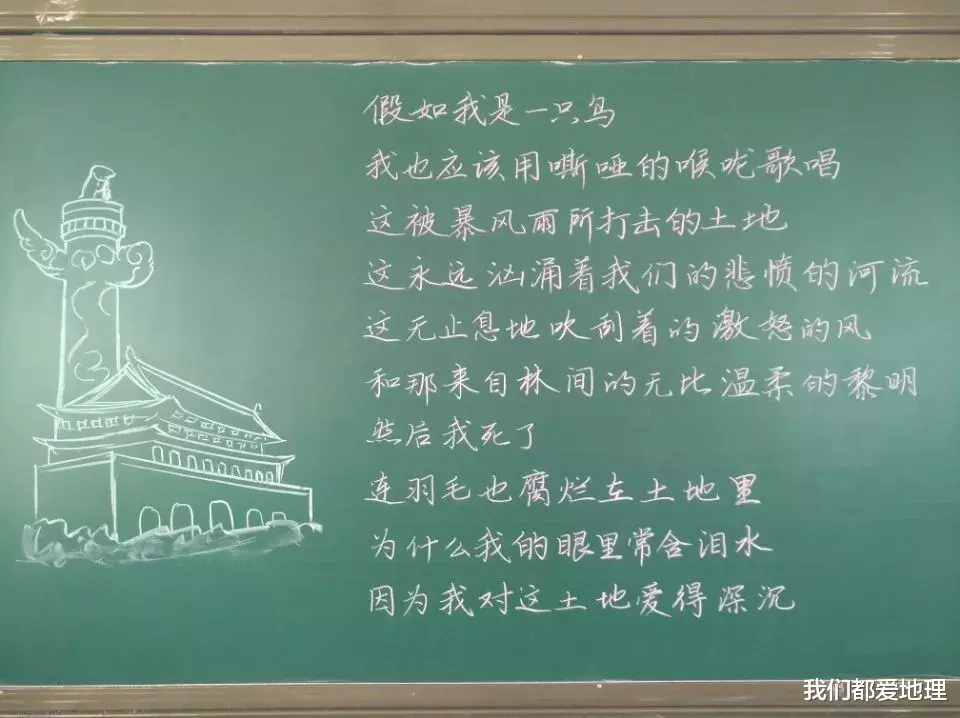 假如我是一只鸟
我也应该用嘶哑的喉咙歌唱
这被暴风雨所打击的土地
这永远汹涌着我们的悲愤的河流
这无止息地吹刮着的激怒的风
和那来自林间的无比温柔的黎明
然后我死了
连羽毛也腐烂在土地里
为什么我的眼里常含泪水
因为我对这土地爱得深沉
我们都爱地理